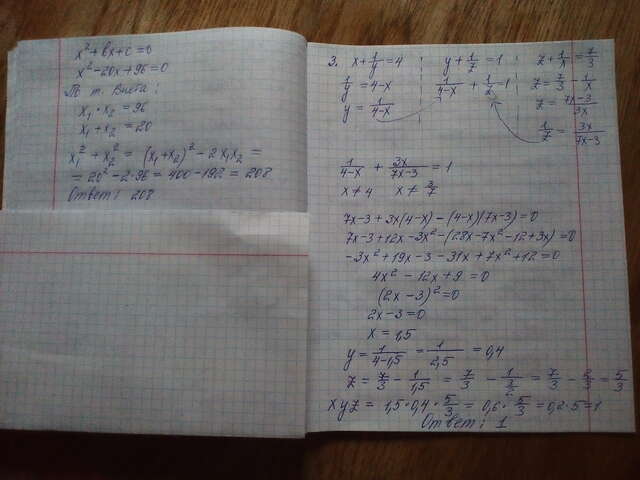 x² + bx + c = 0
x² - 20x + 96 = 0
По т. Виета:
x₁ · x₂ = 96
x₁ + x₂ = 20
x₁² + x₂² = (x₁ + x₂)² - 2x₁x₂ =
= 20² - 2·96 = 400 - 192 = 208
Ответ: 208
3. x + 1/y = 4 y + 1/z = 1 z + 1/x = 7/3
1/y = 4 - x 1/(4-x) + 1/z = 1 z = 7/3 - 1/x
y = 1/(4-x) z = (7x-3)/3x
1/z = 3x/(7x-3)
1/(4-x) + 3x/(7x-3) = 1
x ≠ 4 x ≠ 3/7
7x - 3 + 3x(4-x) - (4-x)(7x-3) = 0
7x - 3 + 12x - 3x² - (28x - 7x² - 12 + 3x) = 0
-3x² + 19x - 3 - 31x + 7x² + 12 = 0
4x² - 12x + 9 = 0
(2x - 3)² = 0
2x - 3 = 0
x = 1,5
y = 1/(4-1,5) = 1/2,5 = 0,4
z = 7/3 - 1/1,5 = 7/3 - 1/(3/2) = 7/3 - 2/3 = 5/3
xyz = 1,5 · 0,4 · 5/3 = 0,6 · 5/3 = 0,2 · 5 = 1
Ответ: 1